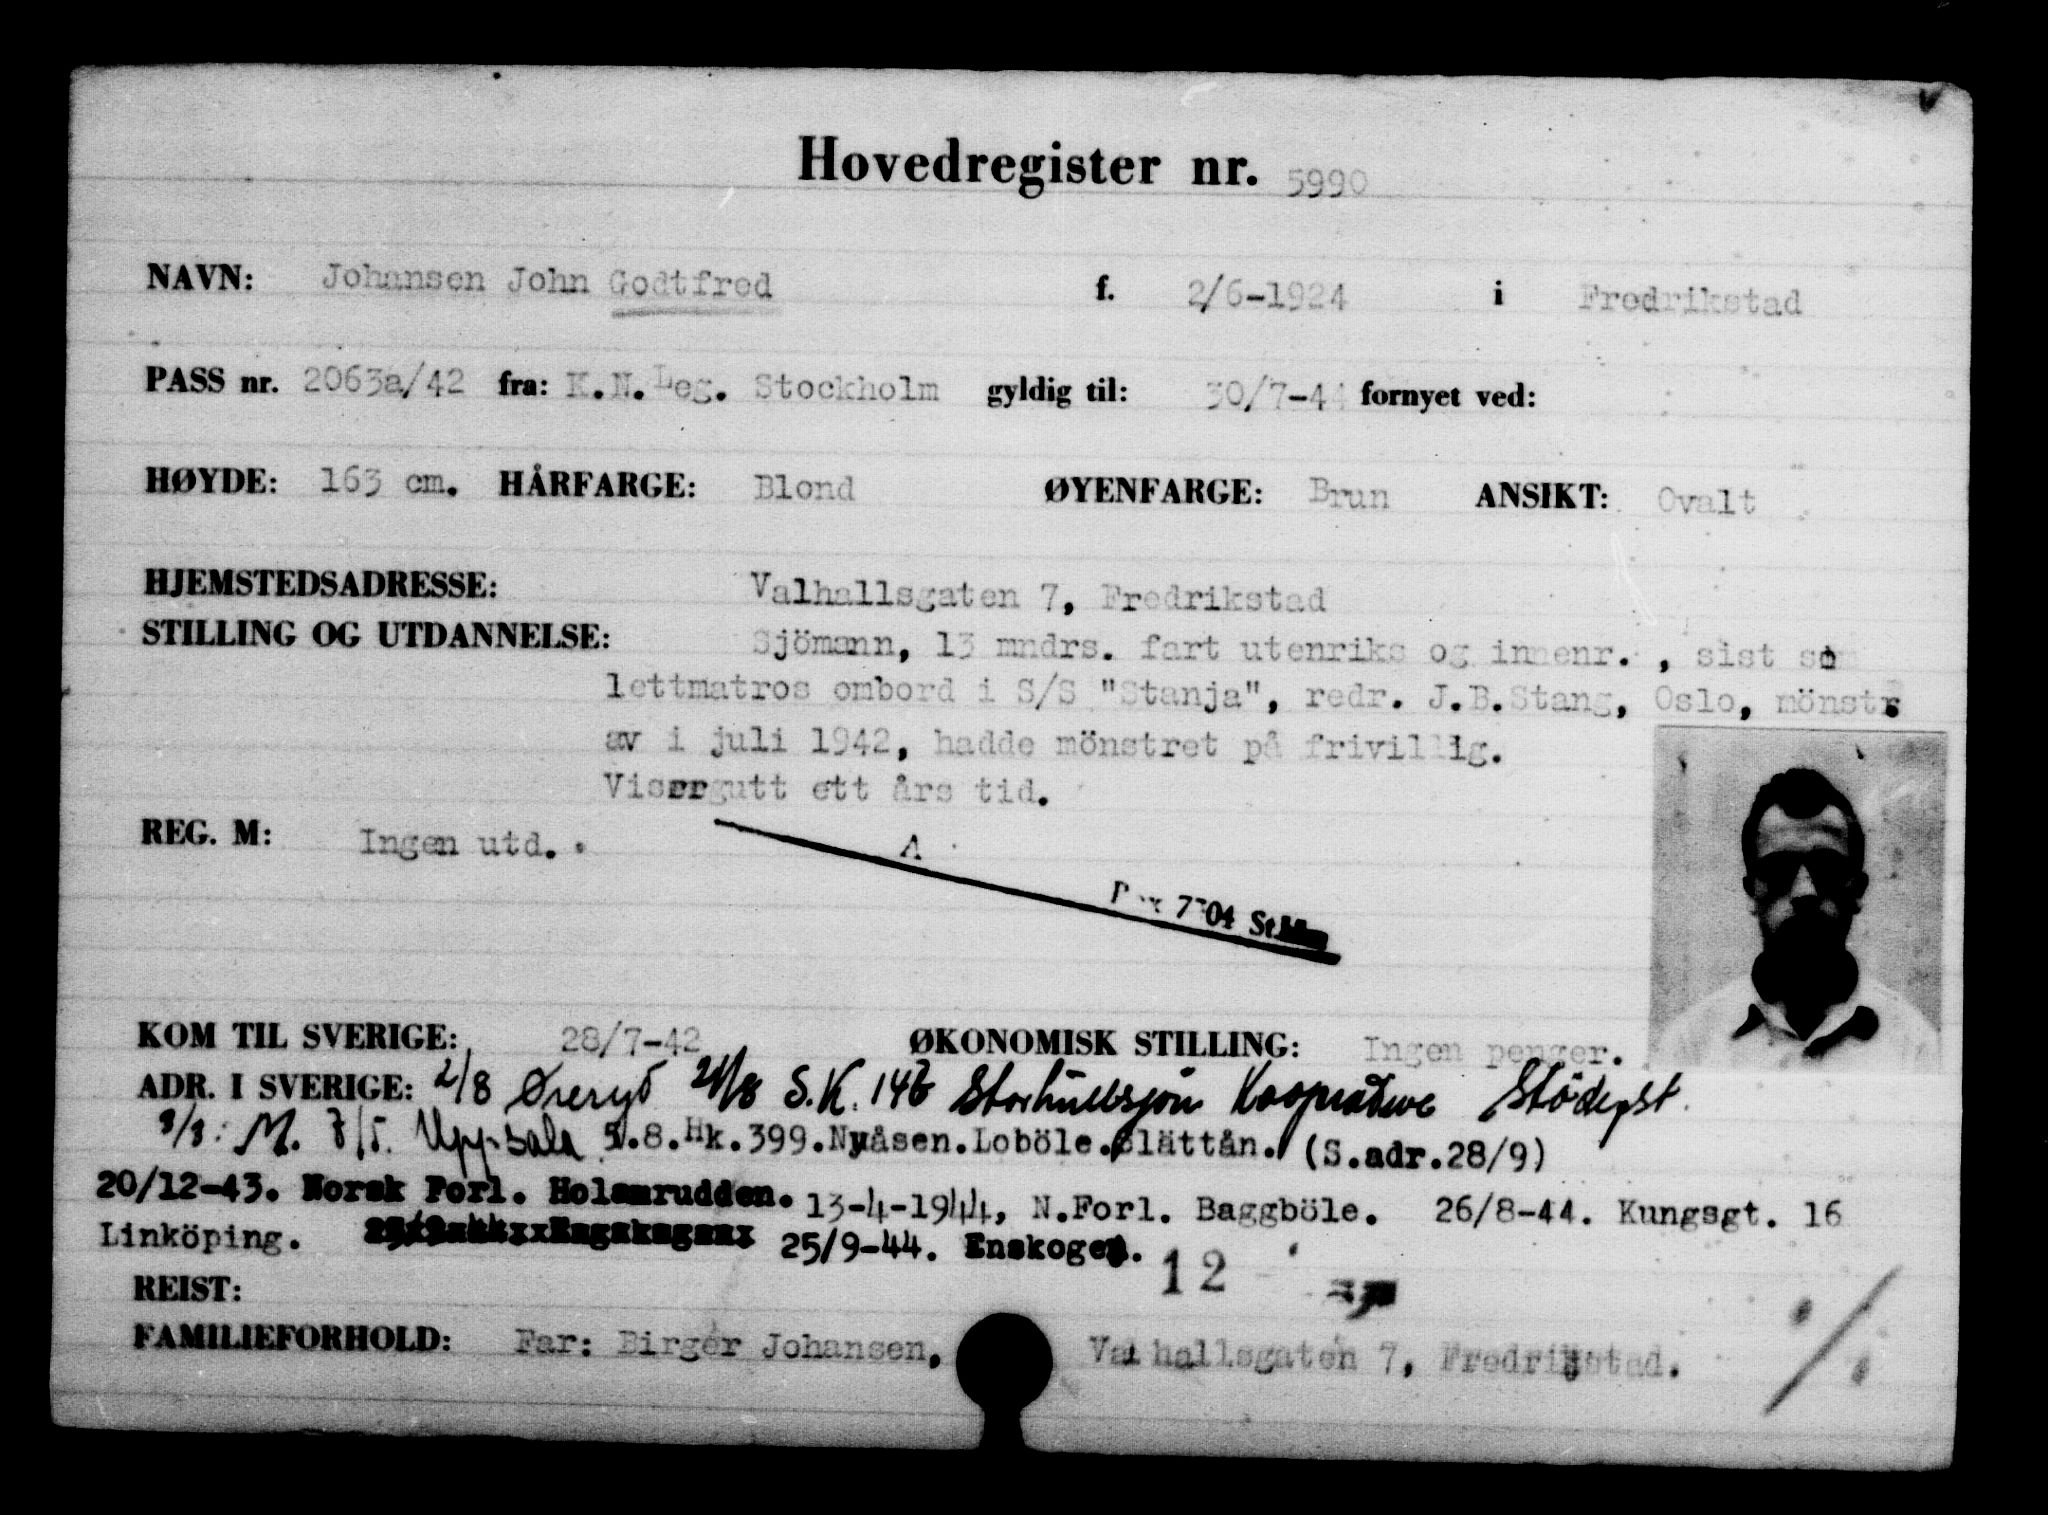 Hovedregister nr. 5990
NAVN: Johansen John Godtfred f. 2/6-1924 i Fredrikstad
PASS nr. 2063a/42 fra: K.N.Leg. Stockholm gyldig til: 30/7-44 fornyet ved:
HØYDE: 163 cm. HÅRFARGE: Blond ØYENFARGE: Brun ANSIKT: Ovalt
HJEMSTEDSADRESSE: Valhallsgaten 7, Fredrikstad
STILLING OG UTDANNELSE: Sjömann, 13 mndrs. fart utenriks og innenr. , sist som
lettmatros ombord i S/S "Stanja", redr. J.B.Stang, Oslo, mönstr
av i juli 1942, hadde mönstret på frivillig.
Visergutt ett års tid.
REG. M: Ingen utd.
A
KOM TIL SVERIGE: 28/7-42 ØKONOMISK STILLING: Ingen penger.
ADR. I SVERIGE: 2/8 Øreryd S.K. 146 Kooperative Stödepst.
M. 7/5. Uppsala 5.8.Hk.399.Nyåsen.Loböle.Slättån. (S.adr.28/9)
20/12-43. Norsk Forl. Holmrudden. 13-4-1944, N.Forl. Baggböle. 26/8-44. Kungsgt. 16
Linköping. 25/9-44. Enskogen.
12
REIST:
FAMILIEFORHOLD: Far: Birger Johansen, Valhallsgaten 7, Fredrikstad.